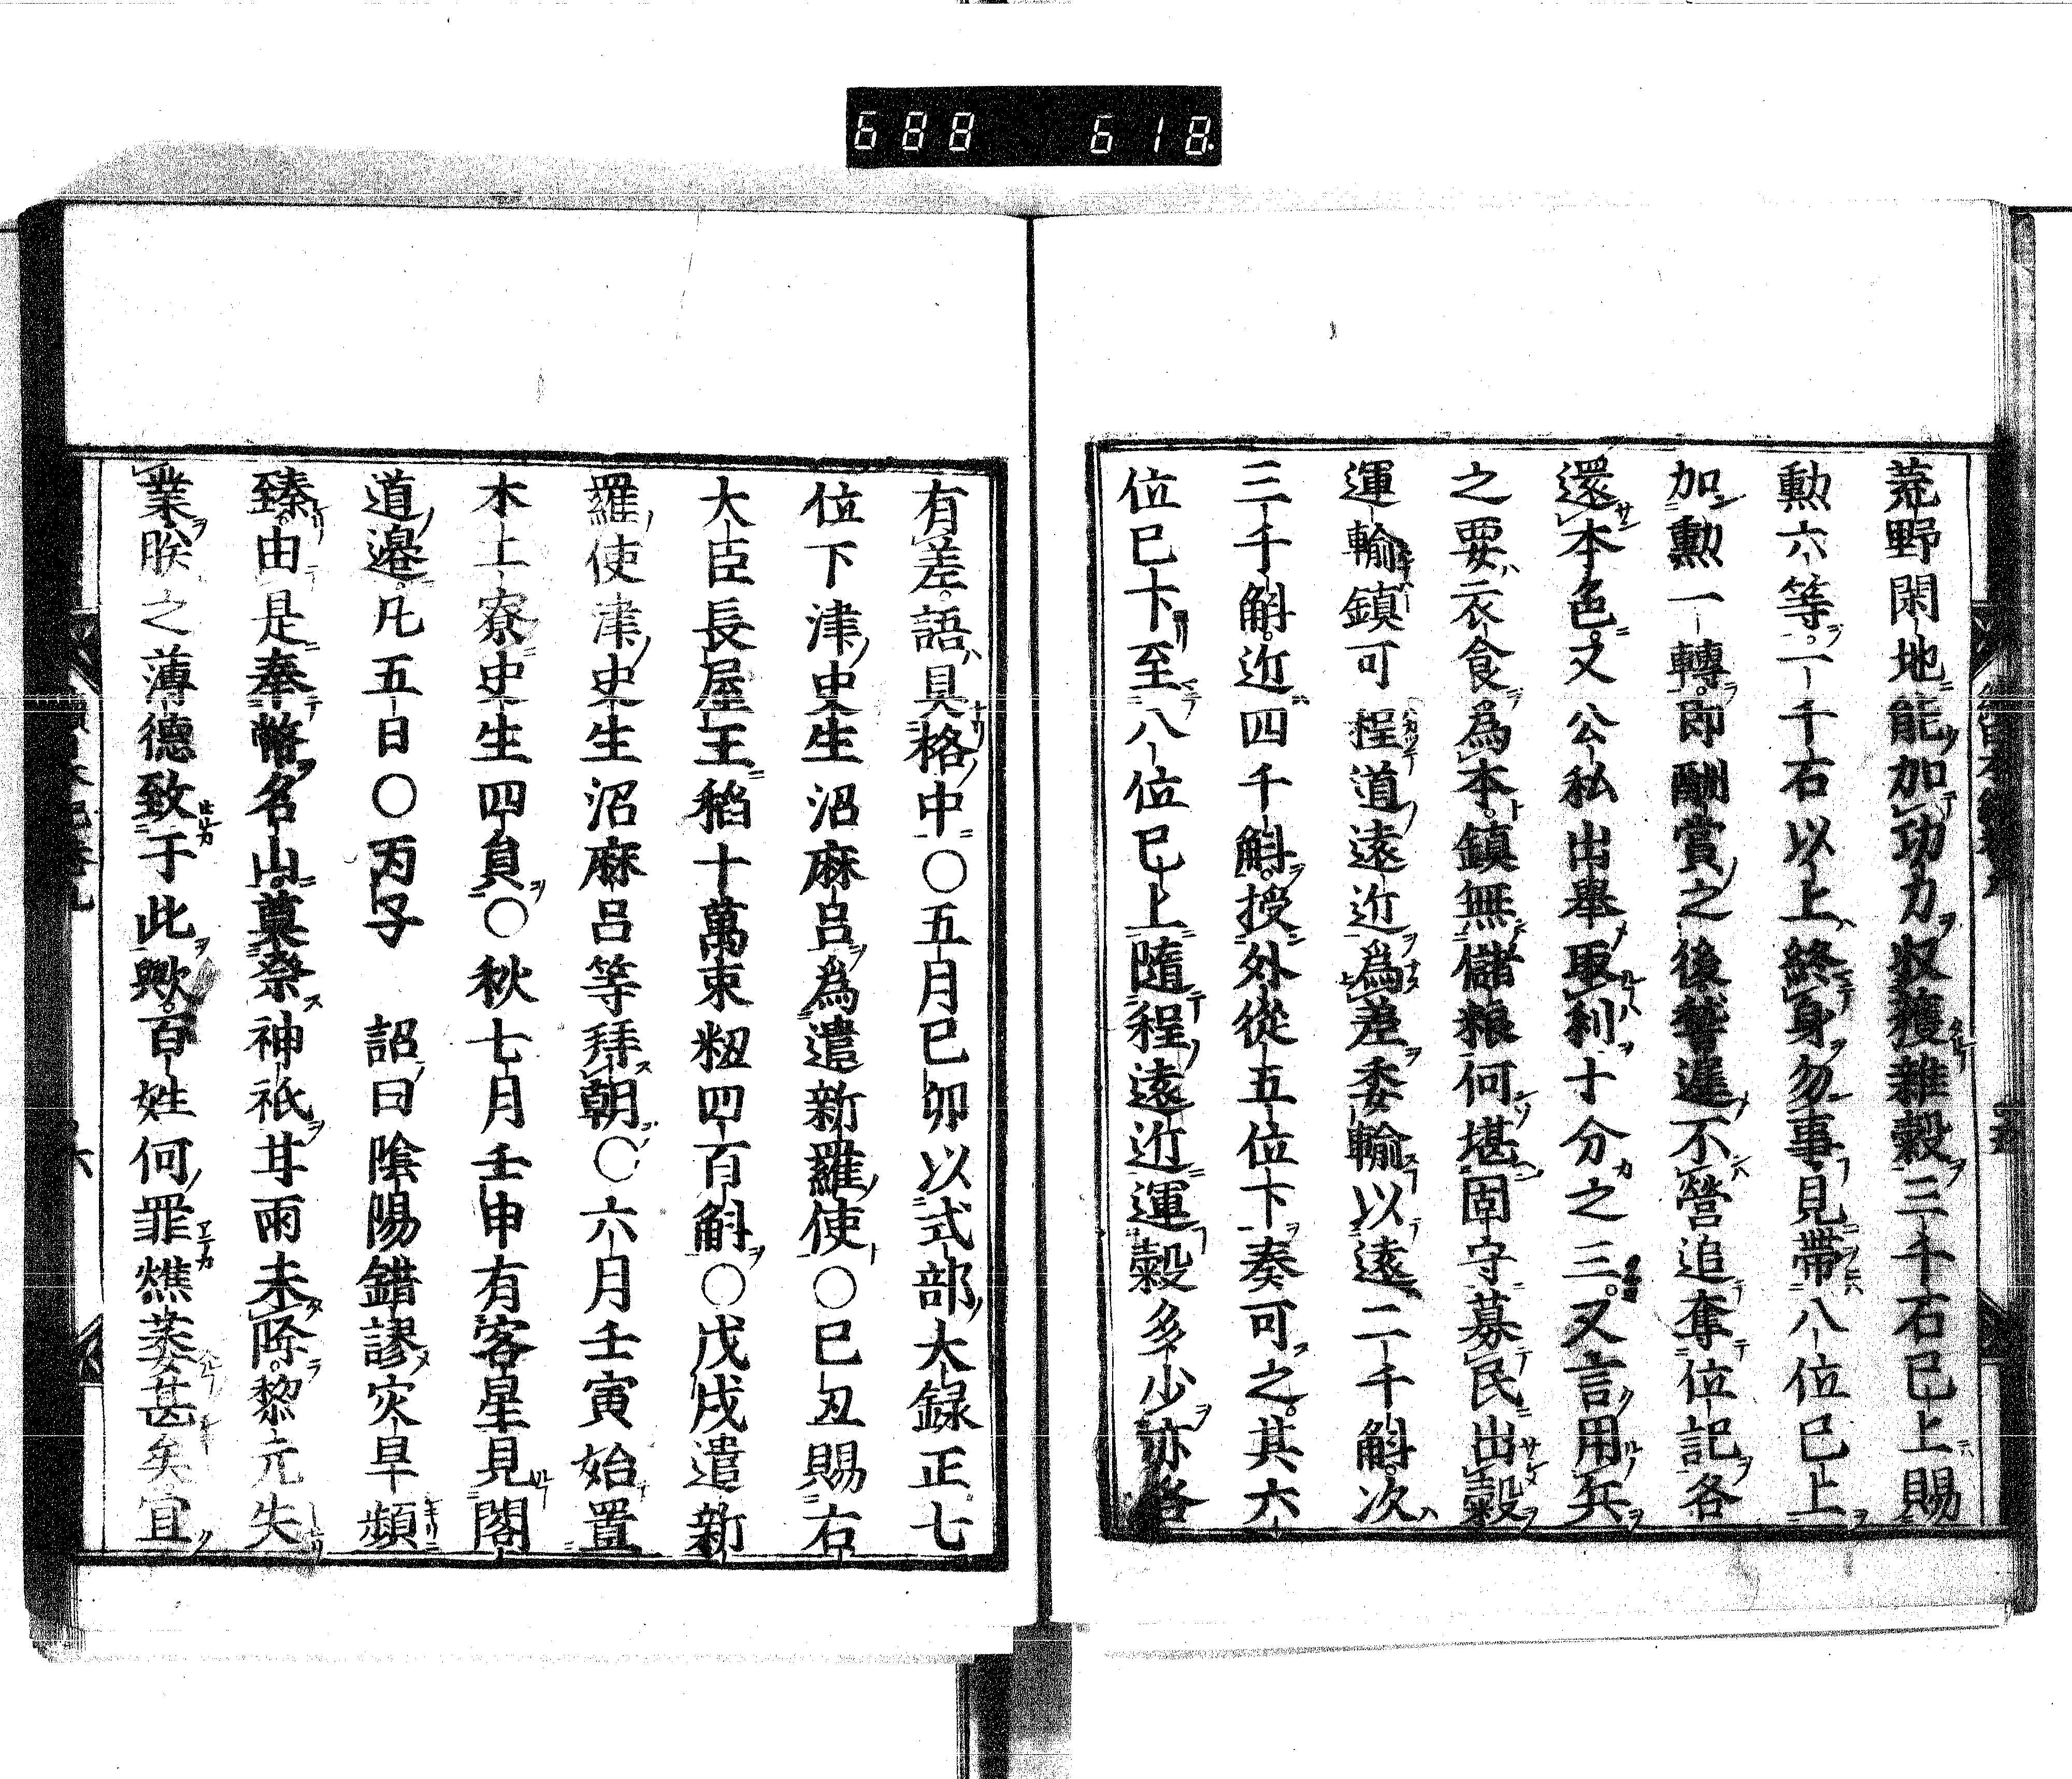 688 618
荒野閑地能加功力収穫雜穀三千石已上賜
勲六等一千石以上終身勿事見帶八位已上
加勲一轉即酬賞之後稽遲不營追奪位記各
還本色又公私出舉取利十分之三又言用兵
之要衣食爲本鎮無儲粮何堪固守募民出穀
運輸鎮可程道遠近爲差委輸以遠二千斛次
三千斛近四千斛授外從五位下奏可之其六
位已下至八位已上隨程遠近運穀多少亦各
有差語具格中〇五月已卯以式部大録正七
位下津史生沼麻呂爲遣新羅使〇已丑賜右
大臣長屋王稻十萬束籾四百斛〇戊戌遣新
羅使津史生沼麻呂等拜朝〇六月壬寅始置
木工寮史生四負〇秋七月壬申有客星見閣
道邉凡五日〇丙子 詔曰陰陽錯謬灾旱頻
臻由是奉幣名山奠祭神祇甘雨未降黎元失
業朕之薄德致于此歟百姓何罪燋萎甚矣宜